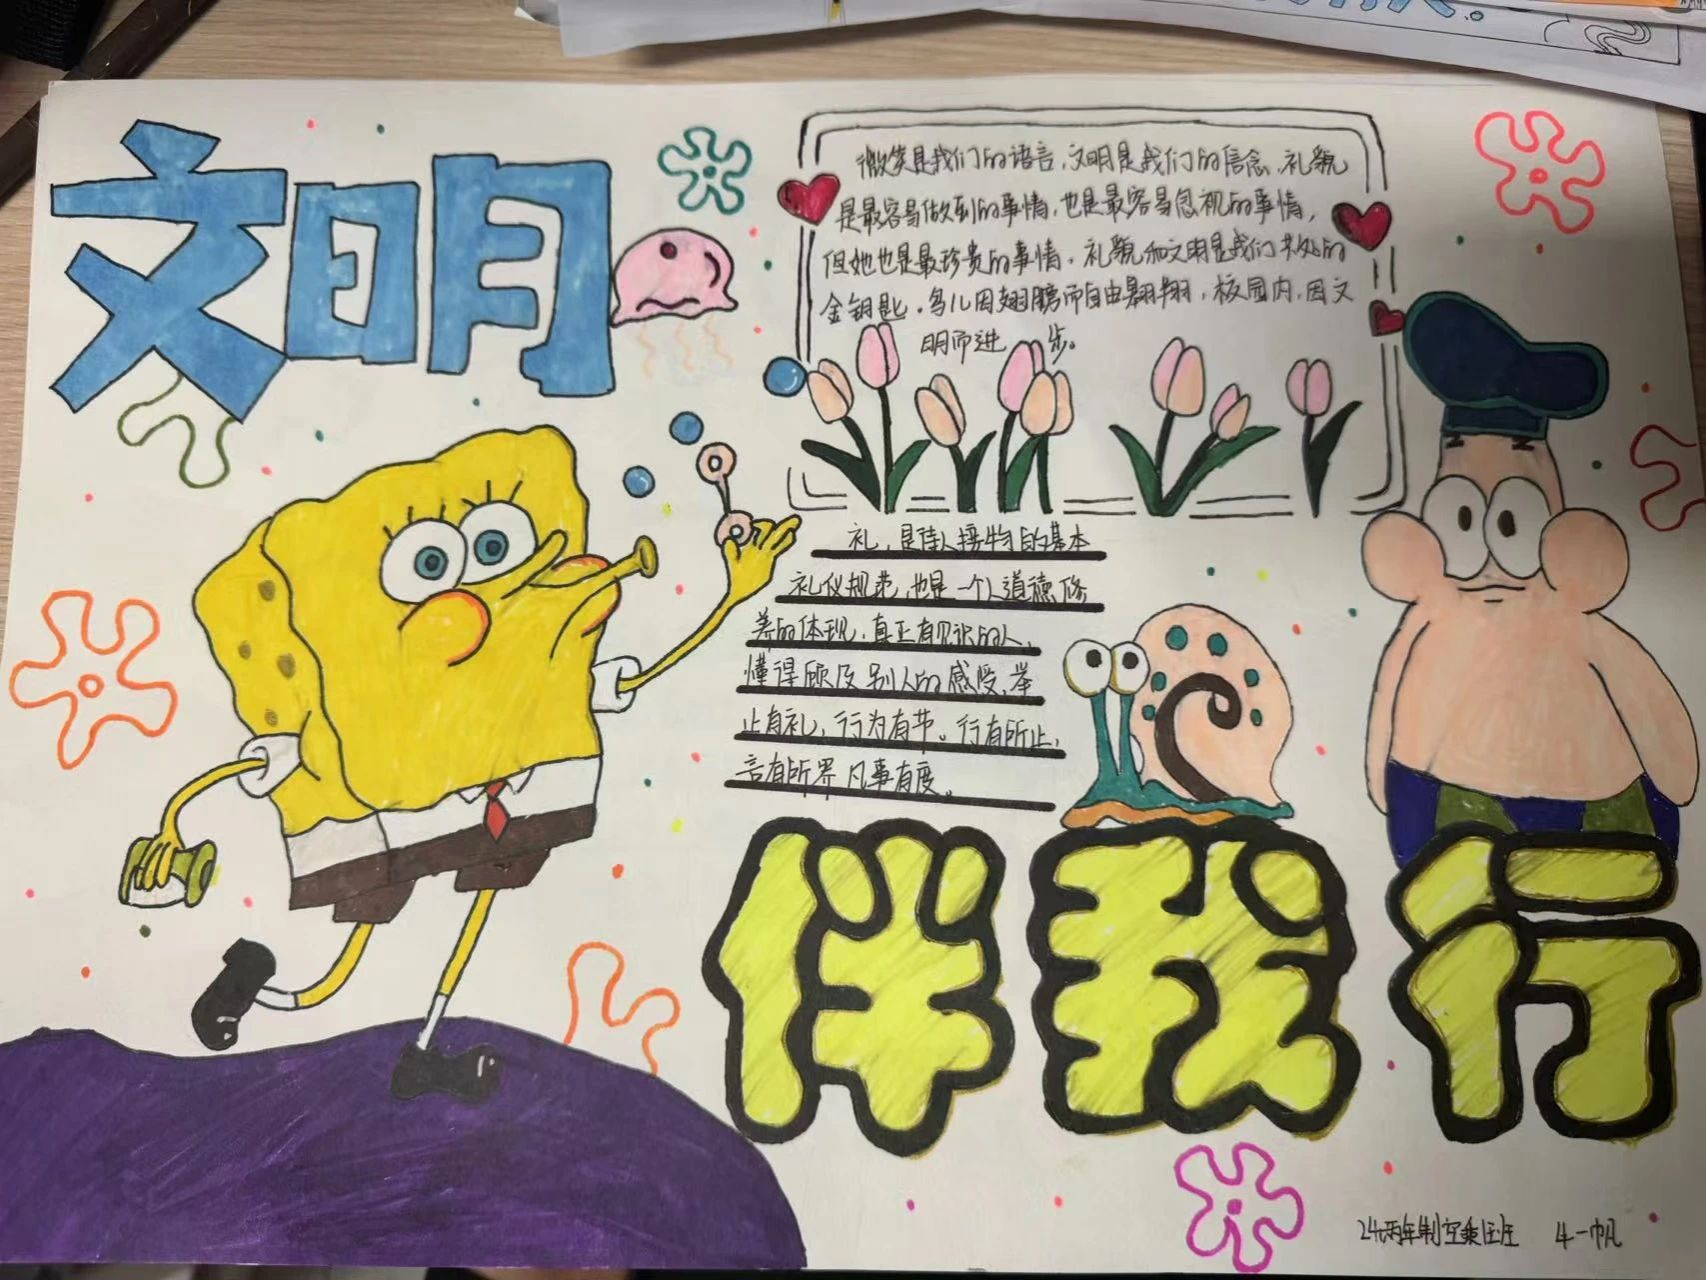 文明
微笑是我们的语言，文明是我们的信念，礼貌
是最容易做到的事情，也是最容易忽视的事情，
但她也是最珍贵的事情。礼貌和文明是我们共处的
金钥匙。鸟儿因翅膀而自由翱翔，校园内，因文
明而进步。
礼，是待人接物的基本
礼仪规范，也是一个人道德修
养的体现，真正有见识的人，
懂得顾及别人的感受，举
止有礼，行为有节。行有所止，
言有所界 凡事有度。
伴我行
24两年制空乘 一帆